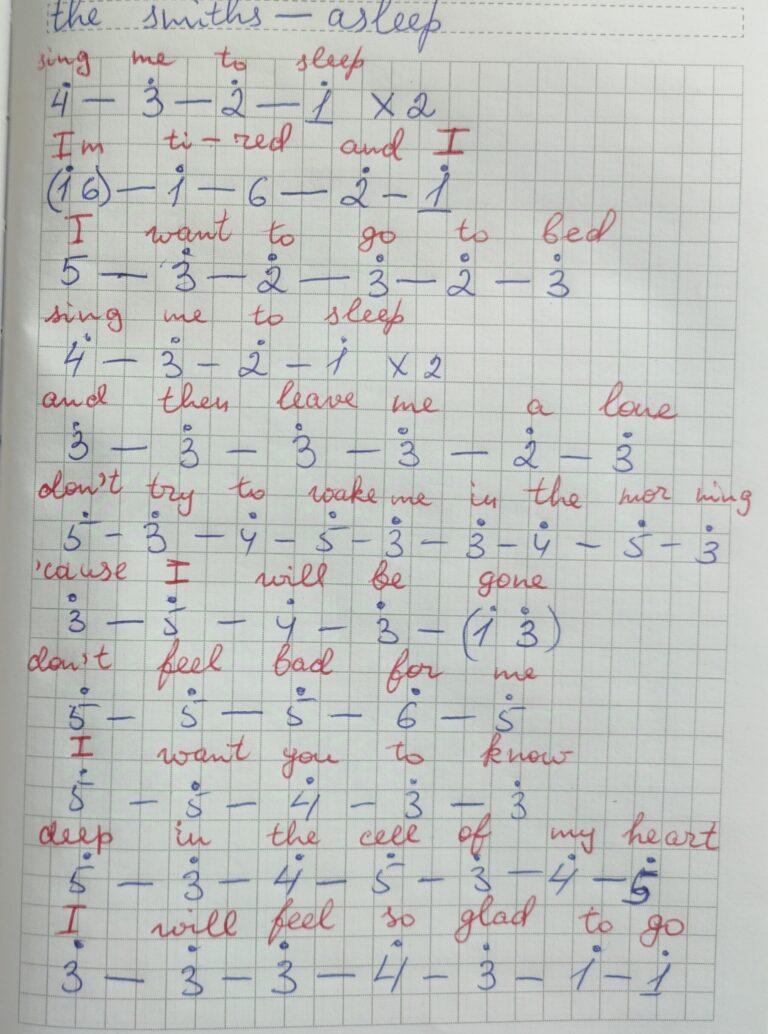 the smiths — asleep
sing me to sleep
4̇ — 3̇ — 2̇ — 1̇ x2
Im ti-red and I
(1̇6) — 1̇ — 6 — 2̇ — 1̇
I want to go to bed
5 — 3̇ — 2̇ — 3̇ — 2̇ — 3̇
sing me to sleep
4̇ — 3̇ — 2̇ — 1̇ x2
and then leave me a lone
3̇ — 3̇ — 3̇ — 3̇ — 2̇ — 3̇
don't try to wake me in the mor ning
5̇ — 3̇ — 4̇ — 5̇ — 3̇ — 3̇ — 4̇ — 5̇ — 3̇
'cause I will be gone
3̇ — 5̇ — 4̇ — 3̇ — (1̇ 3̇)
don't feel bad for me
5̇ — 5̇ — 5̇ — 6̇ — 5̇
I want you to know
5̇ — 5̇ — 4̇ — 3̇ — 3̇
deep in the cell of my heart
5̇ — 3̇ — 4̇ — 5̇ — 3̇ — 4̇ — 5̇
I will feel so glad to go
3̇ — 3̇ — 3̇ — 4̇ — 3̇ — 1̇ — 1̇